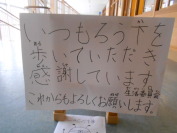 いつもろう下を
歩いていただき
感謝しています
生活委員会
これからもよろしくお願いします。